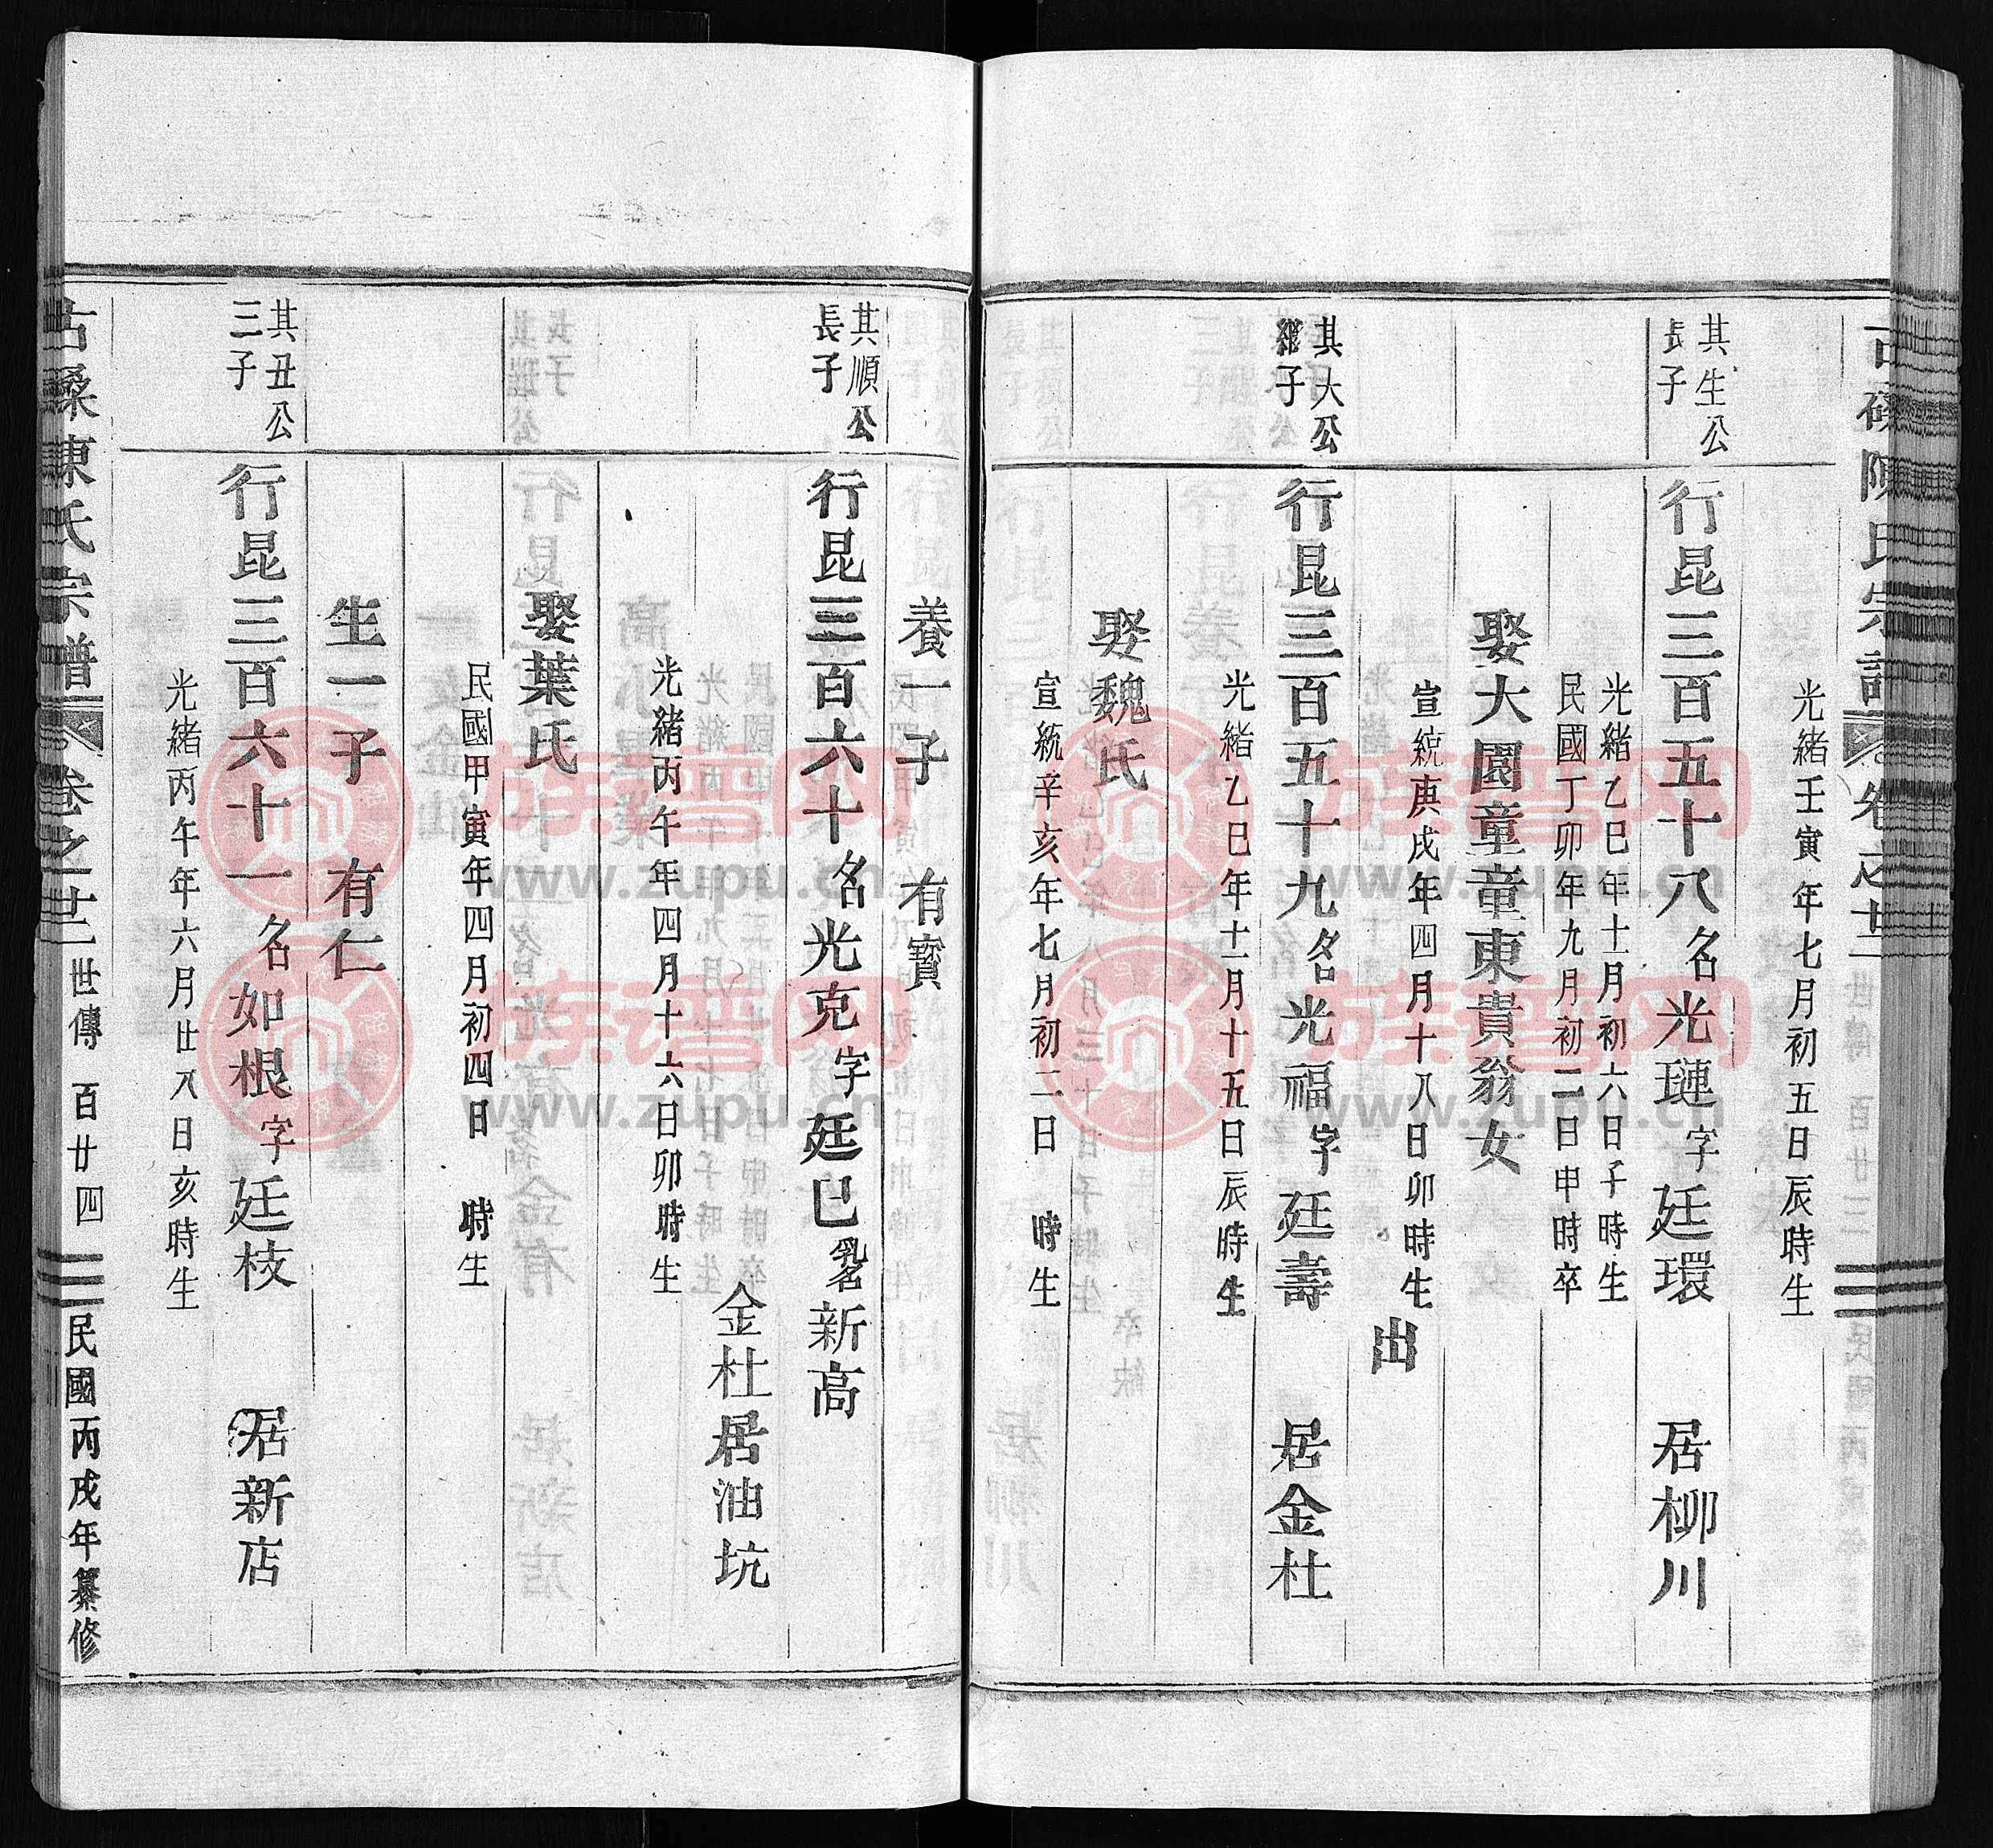 光緒壬寅年七月初五日辰時生
其生公
長子
行昆三百五十八名光璉字廷環 居柳川
光緒乙巳年十一月初六日子時生
民國丁卯年九月初二日申時卒
娶大園童童東貴翁女 出
宣統庚戌年四月十八日卯時生
其大公
繼子
行昆三百五十九名光福字廷壽 居金杜
光緒乙巳年十一月十五日辰時生
娶魏氏
宣統辛亥年七月初二日 時生
養一子 有寳
其順公
長子
行昆三百六十名光克字廷巳乳名新高
金杜居油坑
光緒丙午年四月十六日卯時生
娶葉氏
民國甲寅年四月初四日 時生
生一子 有仁
其丑公
三子
行昆三百六十一名如根字廷枝 居新店
光緒丙午年六月廿八日亥時生
陳氏宗譜 卷之廿二 世傳 百廿四 民國丙戌年纂修
族谱网
www.zupu.cn
族谱网
www.zupu.cn
族谱网
www.zupu.cn
族谱网
www.zupu.cn